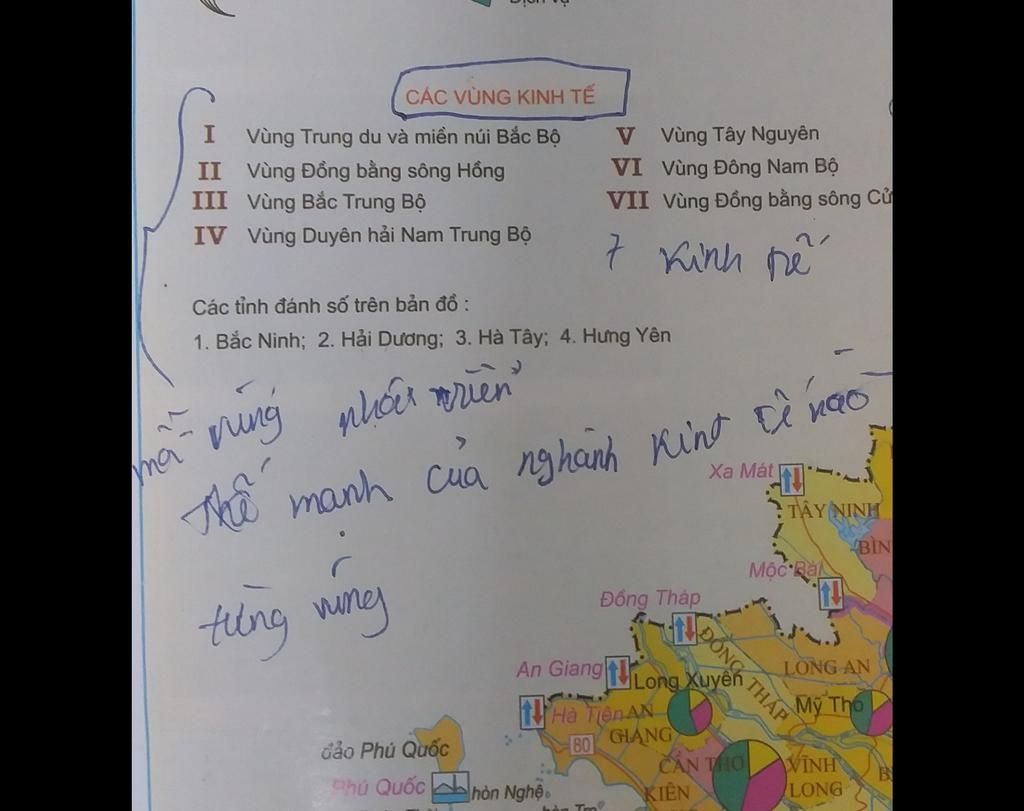 Dịch vụ
CÁC VÙNG KINH TẾ
I Vùng Trung du và miền núi Bắc Bộ
II Vùng Đồng bằng sông Hồng
III Vùng Bắc Trung Bộ
IV Vùng Duyên hải Nam Trung Bộ
V Vùng Tây Nguyên
VI Vùng Đông Nam Bộ
VII Vùng Đồng bằng sông Cử
7 kinh tế
Các tỉnh đánh số trên bản đồ :
1. Bắc Ninh; 2. Hải Dương; 3. Hà Tây; 4. Hưng Yên
mỗi vùng phát triển
thế mạnh của nghành kinh tế nào
từng vùng
Xa Mát
TÂY NINH
BÌN
Mộc Bài
Đồng Tháp
ĐỒNG THÁP
LONG AN
An Giang
Long Xuyên
Mỹ Tho
Hà Tiên
AN GIANG
80
đảo Phú Quốc
CẦN THƠ
VĨNH LONG
B
Phú Quốc
hòn Nghệ
KIÊN